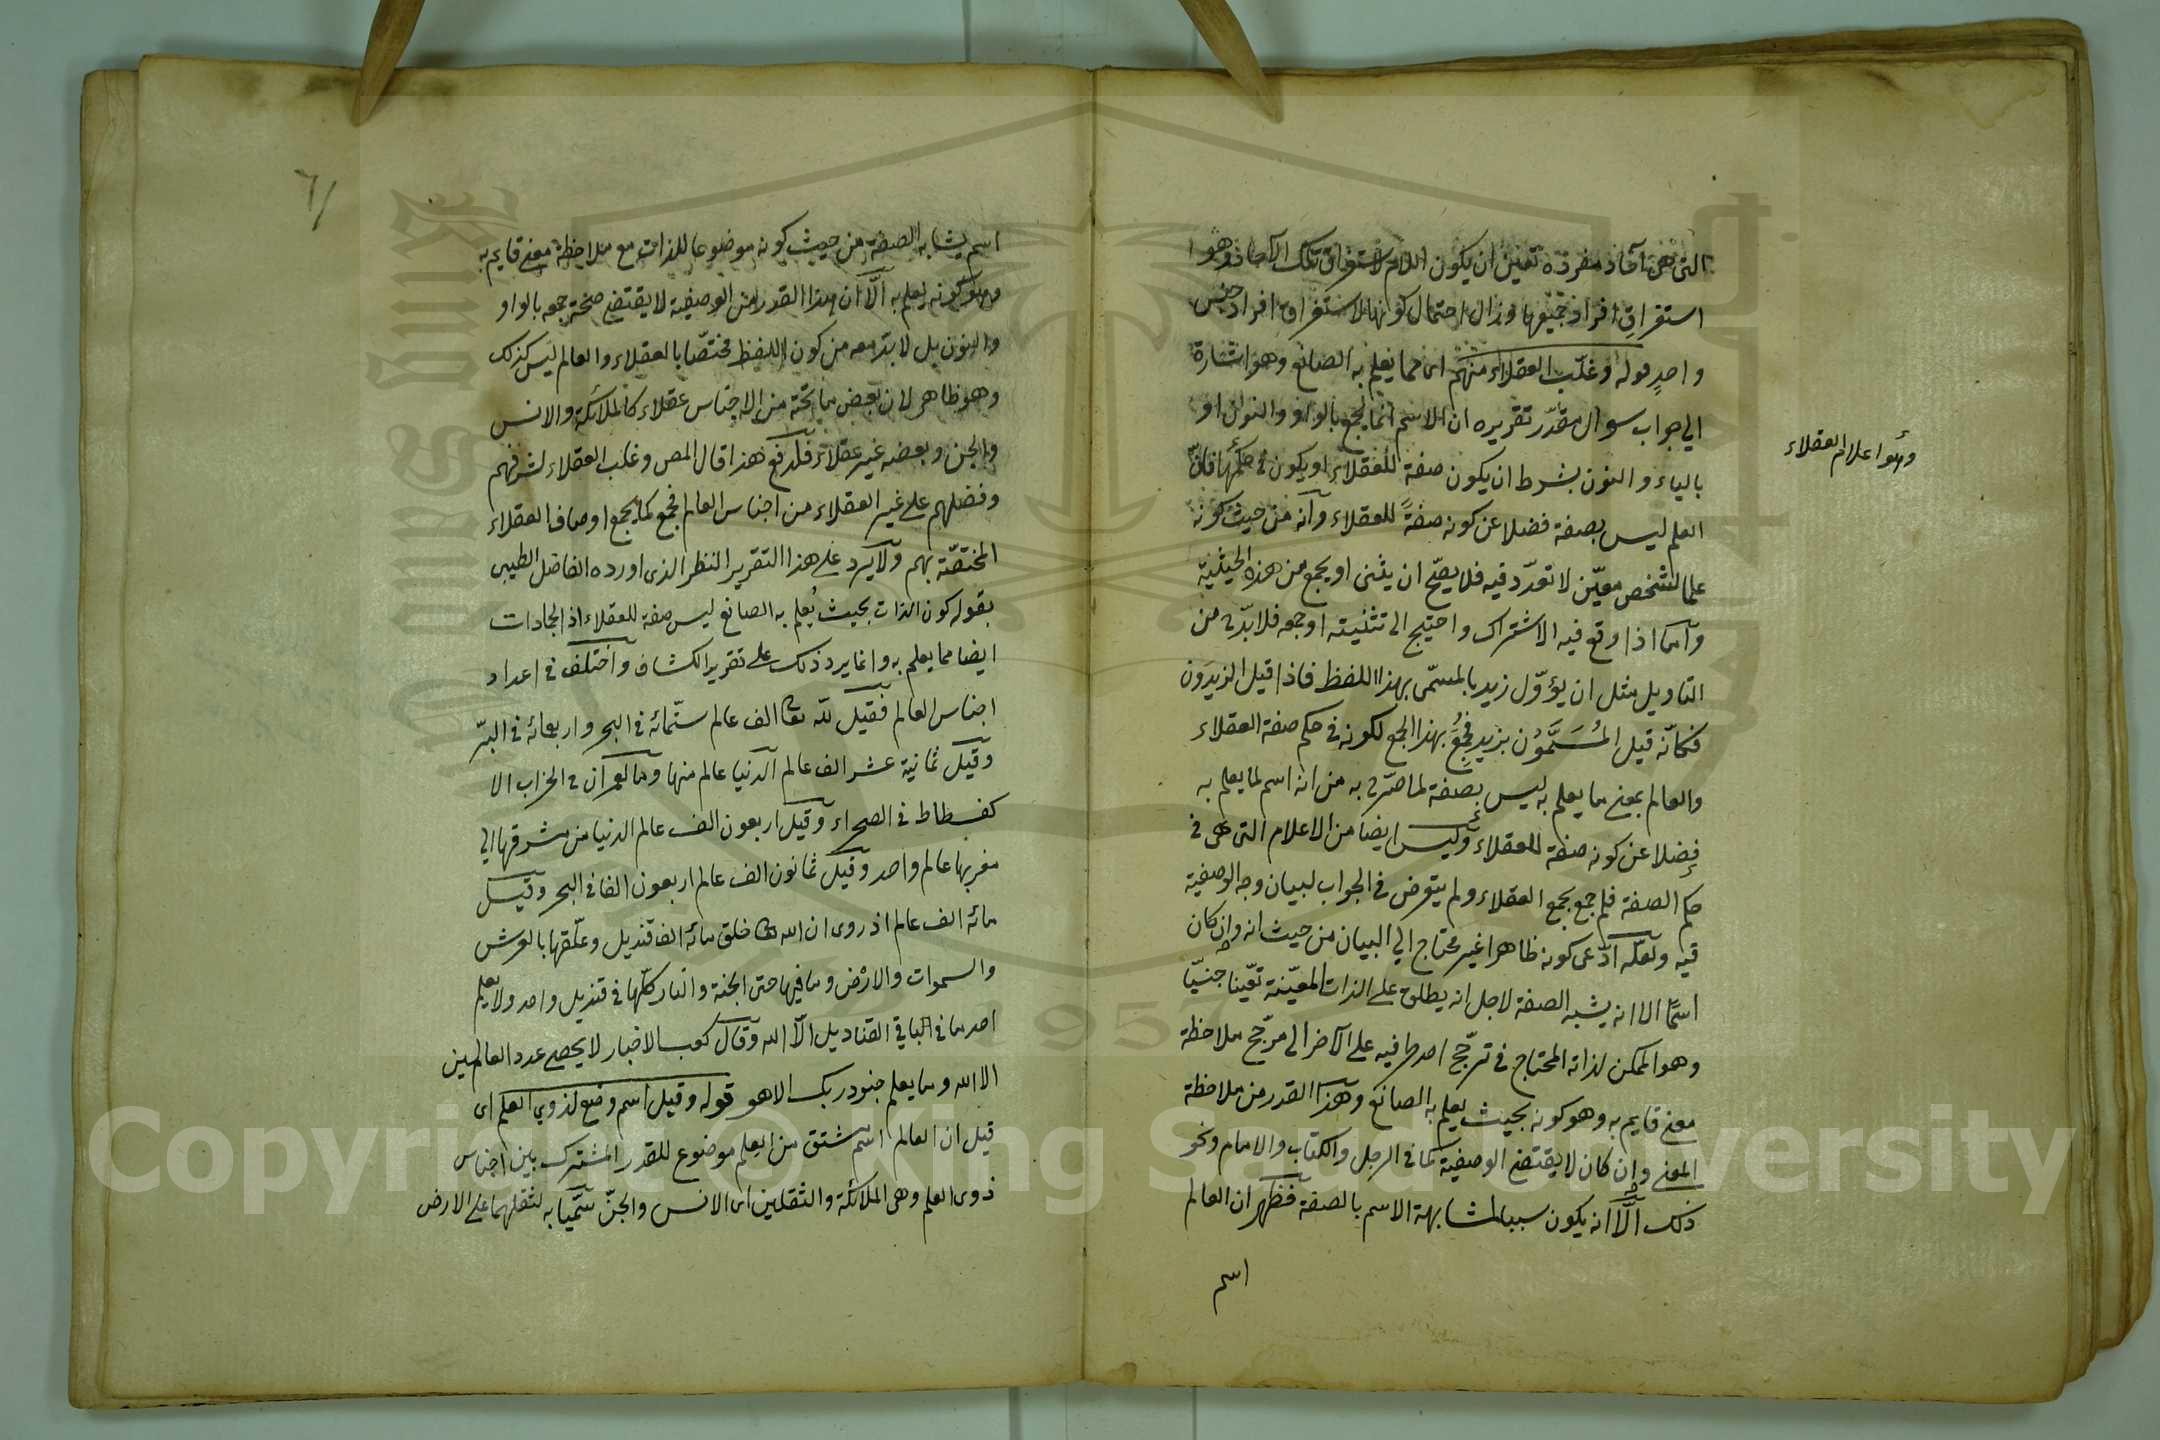 التى هى آحاد مفرده تعين ان يكون اللام لاستغراق تلك الآحاد وهو
استغراق افراد جميعها وزال احتمال كونها لاستغراق افراد جنس
واحد قوله وغلّب العقلاء منهم اى مما يعلم به الصانع وهو اشارة
الى جواب سوال مقدّر تقريره ان الاسم انما يجمع بالواو والنون او
بالياء والنون بشرط ان يكون صفة للعقلاء او يكون فى حكمها فانّ
وهو اعلام العقلاء
العلم ليس بصفة فضلا عن كونه صفةً للعقلاء وانه من حيث كونه
علما لشخص معيّن لا تعدّد فيه فلا يصحّ ان يثنى او يجمع من هذه الحيثية
واما اذا وقع فيه الاشتراك واحتيج الى تثنيته او جمعه فلا بدّ من
التاويل مثل ان يؤوّل زيد بالمسمّى بهذا اللفظ فاذا قيل الزيدَون
فكانّه قيل المُسَمَّوُن بزيد فجُمِعَ بهذا الجمع لكونه فى حكم صفة العقلاء
والعالم بمعنى ما يعلم به ليس بصفة لما صرّح به من انه اسم لما يعلم به
فضلا عن كونه صفة للعقلاء وليس ايضا من الاعلام التى هى فى
حكم الصفة فلم جمع بجمع العقلاء ولم يتعرض فى الجواب لبيان وجه الوصفية
فيه ولعلّه ادّعى كونه ظاهرا غير محتاج الى البيان من حيث انه وان كان
اسمًا الا انه يشبه الصفة لاجل انه يطلق على الذات المعيّنة تعيّنا جنسيّا
وهو الممكن لذاته المحتاج فى ترجّح احد طرفيه على الآخر الى مرجّح ملاحظة
معنى قايم به وهو كونه بحيث يعلم به الصانع وهذا القدر من ملاحظة
المعنى وان كان لا يقتضى الوصفية كما فى الرجل والكتاب والامام ونحو
ذلك الّا انه يكون سببا لمشابهة الاسم بالصفة فظهر ان العالم
اسم
٦١
اسم يشابه الصفة من حيث كونه موضوعا للذات مع ملاحظة معنى قايم به
وهو كونه يعلم به الّا ان هذا القدر من الوصفية لا يقتضى صحة جمعه بالواو
والنون بل لا بدّ معه من كون اللفظ مختصّا بالعقلاء والعالم ليس كذلك
وهو ظاهر لان بعض ما تحته من الاجناس عقلاء كالملائكة والانس
والجن وبعضه غير عقلاء فلدفع هذا قال المص وغلب العقلاء لشرفهم
وفضلهم على غير العقلاء من اجناس العالم فجمع كما يجمع اوصاف العقلاء
المختصّة بهم ولا يرد على هذا التقرير النظر الذى اورده الفاضل الطيبى
بقوله كون الذات بحيث يُعلم به الصانع ليس صفة للعقلاء اذ الجمادات
ايضا مما يعلم به وانما يرد ذلك على تقرير الكشاف واختلف فى اعداد
اجناس العالم فقيل لله تعا الف عالم ستّمائة فى البحر واربعمائة فى البرّ
وقيل ثمانية عشر الف عالم الدنيا عالم منها وما العمران فى الخراب الا
كفسطاط فى الصحراء وقيل اربعون الف عالم الدنيا من شرقها الى
مغربها عالم واحد وقيل ثمانون الف عالم اربعون الفا فى البحر وقيل
مائة الف عالم اذ روى ان الله تعا خلق مائة الف قنديل وعلّقها بالعرش
والسموات والارْض وما فيها حتى الجنة والنار كلّها فى قنديل واحد ولا يعلم
احد ما فى الباقى القناديل الّا الله وقال كعب الاخبار لا يحصى عدد العالمين
الا الله وما يعلم جنود ربك الا هو قوله وقيل اسم وضع لذوى العلم اى
قيل ان العالم اسم مشتق من العلم موضوع للقدر المشترك بين اجناس
ذوى العلم وهى الملائكة والثقلين اى الانس والجنّ سمّيا به لثقلهما على الارض
Copyright © King Saud University
1957